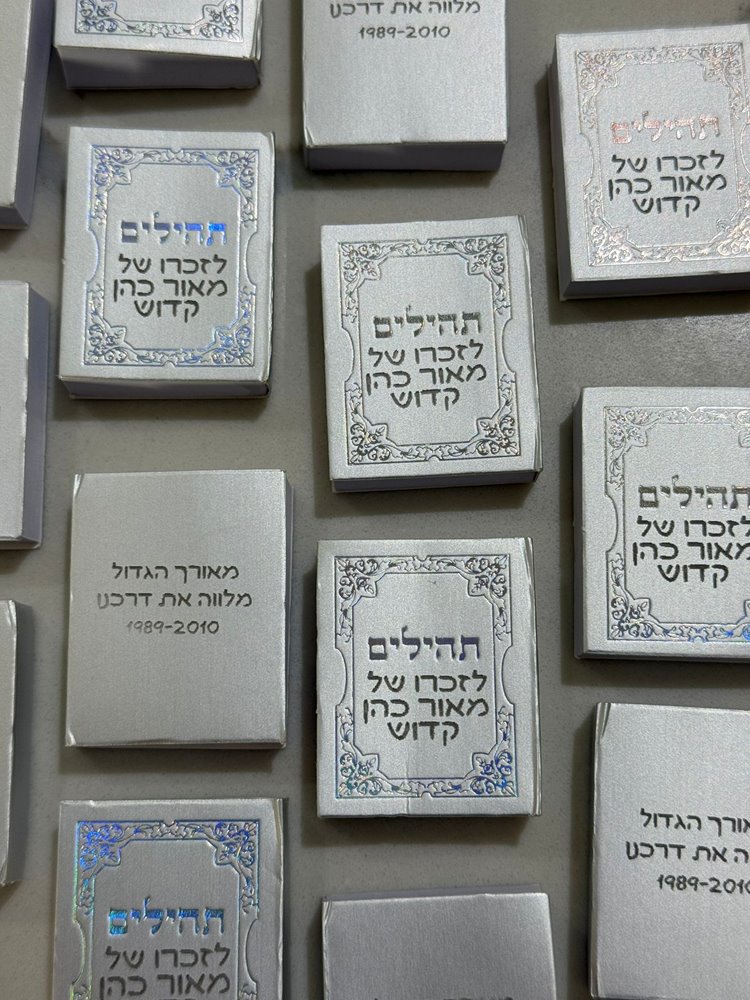 מלווה את דרכנו
1989-2010
תהילים
לזכרו של
מאור כהן
קדוש
תהילים
לזכרו של
מאור כהן
קדוש
תהילים
לזכרו של
מאור כהן
קדוש
תהילים
לזכרו של
מאור כהן
קדוש
מאורך הגדול
מלווה את דרכנו
1989-2010
תהילים
לזכרו של
מאור כהן
קדוש
הגדול
את דרכנו
1989-2010
תהילים
לזכרו של
מאור כהן
קדוש